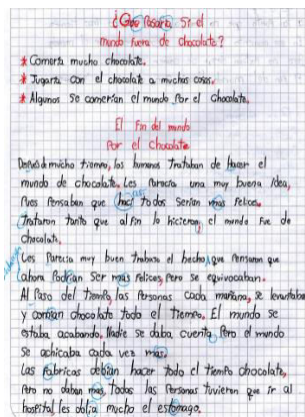 ¿Que Pasaria Si el
mundo fuera de chocolate?
* Comeria mucho chocolate.
* Jugaria con el chocolate a muchas cosas.
* Algunos Se comerian el mundo Por el Chocolate.
El Fin del mundo
Por el Chocolate
Después de mucho tiempo, los humanos trataban de hacer el
mundo de chocolate. Les Parecia una muy buena Idea,
Pues Pensaban que haci todos Serian mas Felices.
Trataron tanto que al fin lo hicieron, el mundo Fue de
chocolate.
Les Parecia muy buen trabajo el hecho, que Pensaron que
ahora Podrian Ser mas Felices, Pero se equivocaban.
Al Paso del tiempo, las Personas cada mañana, se levantaba
y comian chocolate todo el tiempo. El mundo se
estaba acabando, Nadie se daba cuenta Pero el mundo
Se achicaba cada vez mas.
Las Fabricas debian hacer todo el tiempo chocolate,
Pero no daban mas, todas las Personas tuvieron que ir al
hospital, les dolia mucho el estomago.